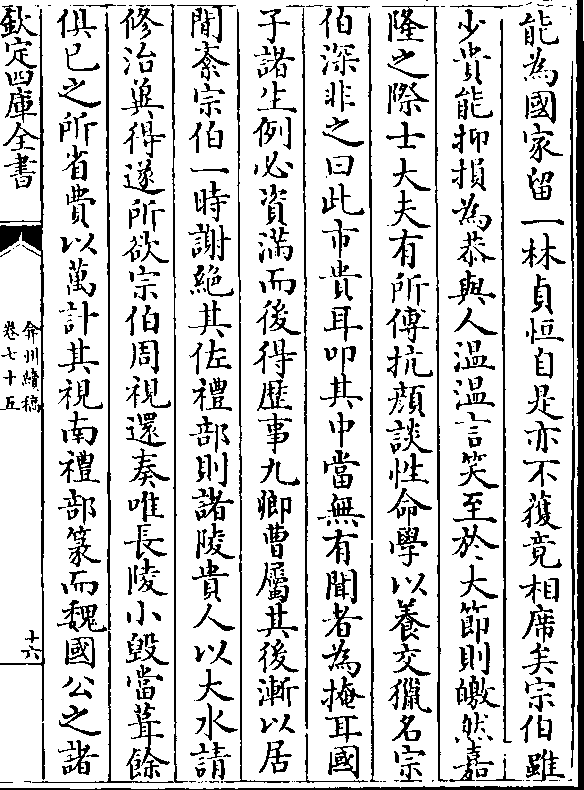 能為國家留一林貞恒自是亦不獲竟相席矣宗伯雖
少貴能抑損為恭與人溫溫言笑至於大節則皦然嘉
隆之際士大夫有所傅抗顔談性命學以養交獵名宗
伯深非之曰此市貴耳叩其中當無有聞者為掩耳國
子諸生例必資滿而後得歴事九卿曹屬其後漸以居
間紊宗伯一時謝絶其佐禮部則諸陵貴人以大水請
修治兾得遂所欲宗伯周視還奏唯長陵小毁當葺餘
俱已之所省費以萬計其視南禮部篆而魏國公之諸
欽定四庫全書
弇州續稿
卷七十五
十六